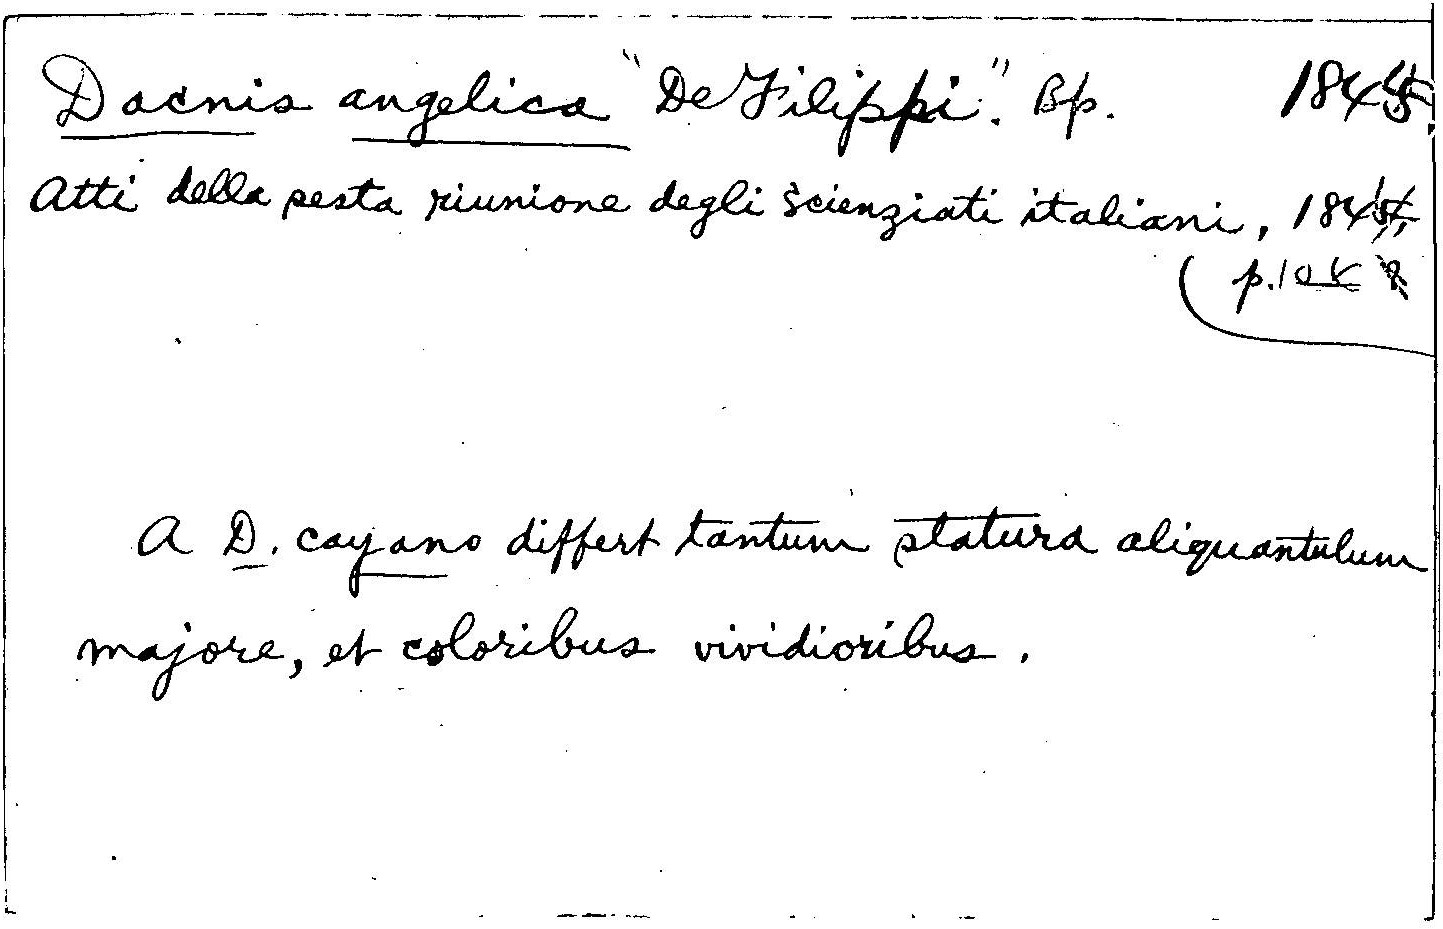 Dacnis angelica "De Filippi". Bp. 1845.
Atti della sesta riunione degli scienziati italiani, 1845,
p.
A D. cayano differt tantum statura aliquantulum
majore, et coloribus vividioribus.